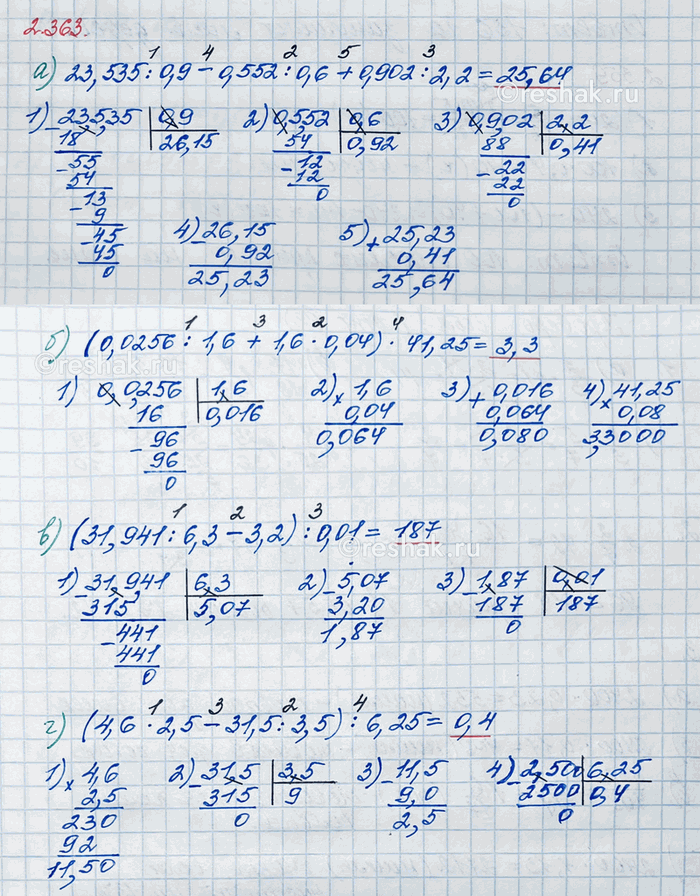 2.363.
1 4 2 5 3
а) 23,535 : 0,9 - 0,552 : 0,6 + 0,902 : 2,2 = 25,64
reshak.ru
1) 23,535 | 0,9 2) 0,552 | 0,6 3) 0,902 | 2,2
- 18 26,15 54 0,92 88 0,41
- 55 - 12 - 22
54 12 22
- 13 0 0
9
- 45 4) - 26,15 5) + 25,23
45 0,92 0,41
0 25,23 25,64
1 3 2 4
б) (0,0256 : 1,6 + 1,6 · 0,04) · 41,25 = 3,3
reshak.ru
1) 0,0256 | 1,6 2) × 1,6 3) + 0,016 4) × 41,25
16 0,016 0,04 0,064 0,08
- 96 0,064 0,080 3,3000
96
0
1 2 3
в) (31,941 : 6,3 - 3,2) : 0,01 = 187
reshak.ru
1) - 31,941 | 6,3 2) - 5,07 3) - 1,87 | 0,01
315 5,07 3,20 187 187
- 441 1,87 0
441
0
1 3 2 4
г) (4,6 · 2,5 - 31,5 : 3,5) : 6,25 = 0,4
1) × 4,6 2) - 31,5 | 3,5 3) - 11,5 4) - 2,500 | 6,25
2,5 315 9 9,0 2500 0,4
230 0 2,5 0
92
11,50